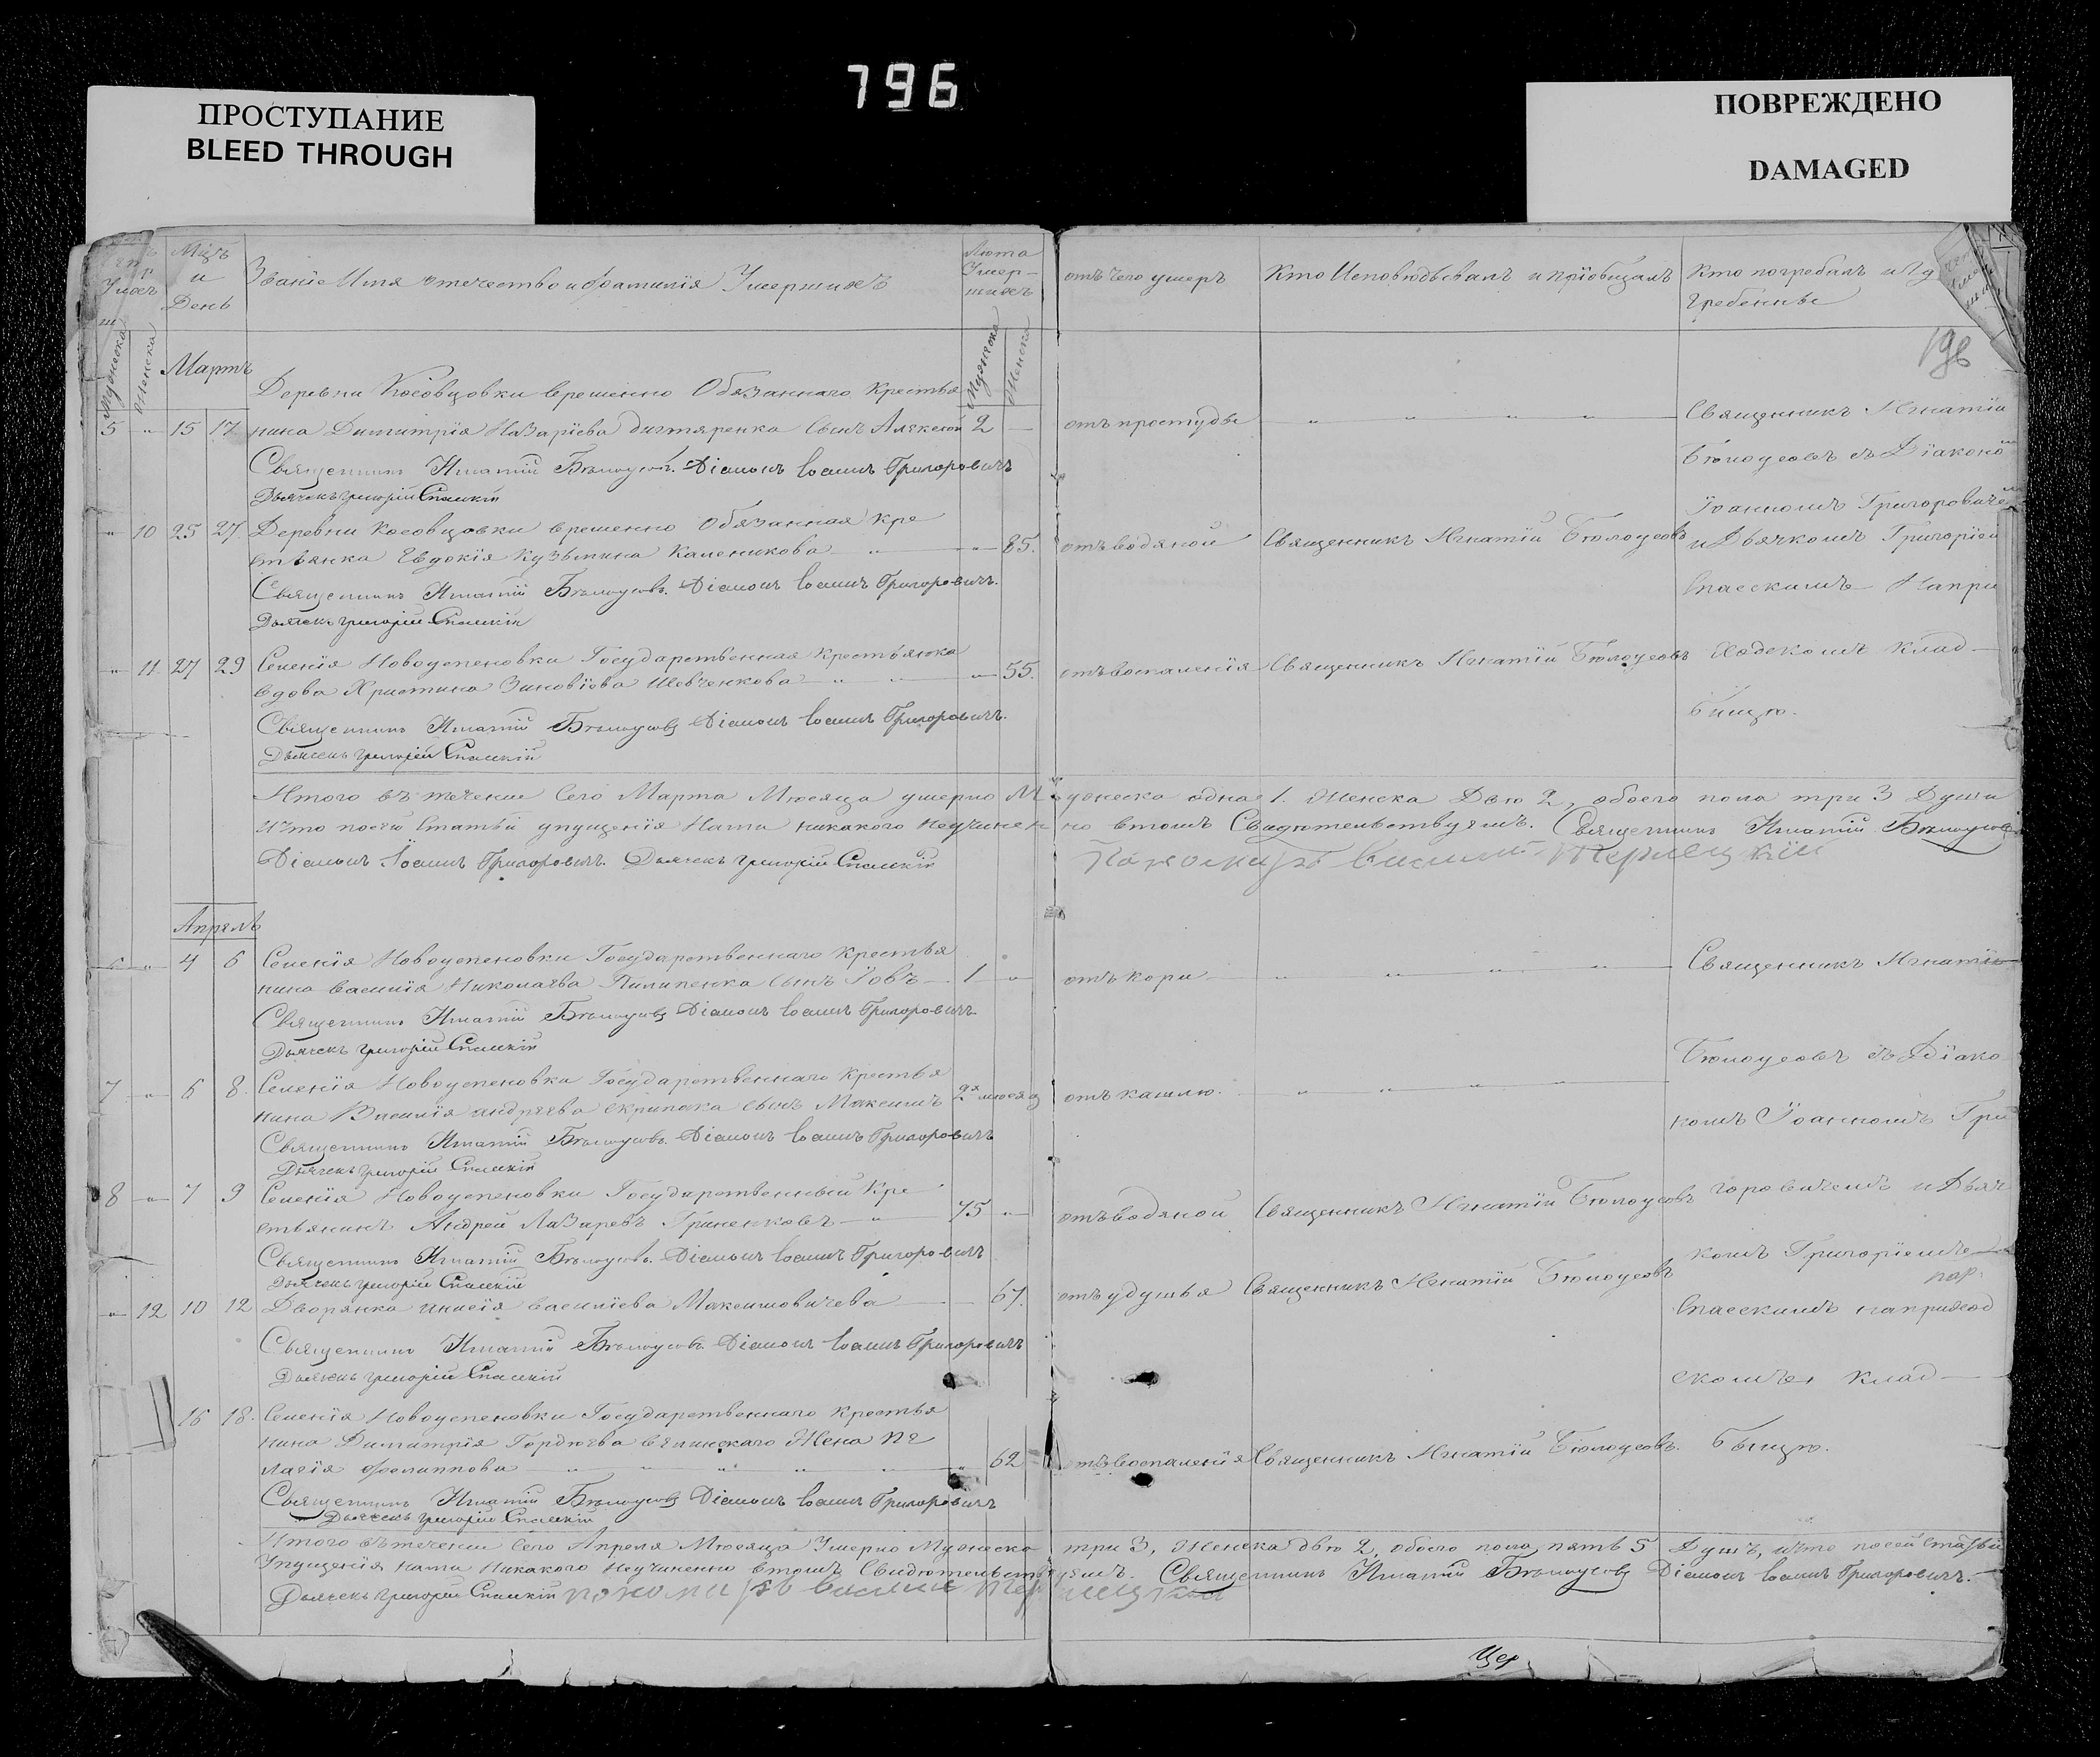 796
ПРОСТУПАНИЕ
BLEED THROUGH
ПОВРЕЖДЕНО
DAMAGED
Мцъ
и
День
Званіе Имя отечество и Фамилія Умершихъ
Лѣта
Умер-
шихъ
отъ чего умеръ
Кто Исповѣдывалъ и пріобщалъ
Кто погребалъ и
гребенны
Мужеска
Женска
Мужеска
Женска
196
Мартъ
Деревни Косовцовки временно Обязаннаго Крестья
5 " 15 17 нина Димитрія Назаріева сынъ Алексей 2 —
отъ простуды
Священникъ Игнатій
Священникъ Игнатій Бѣлоусовъ. Діаконъ Іоаннъ Григоровичъ
Бѣлоусовъ съ Діаконо
Дьячекъ Григорій Спасскій
Іоанномъ Григоровиче
" 10 25 27 Деревни Косовцовки временно Обязанная Кре
стьянка Евдокія Кузьмина Каленикова " " 85.
отъ водяной
Священникъ Игнатій Бѣлоусовъ
и Дьячкомъ Григоріем
Священникъ Игнатій Бѣлоусовъ. Діаконъ Іоаннъ Григоровичъ.
Спасскимъ На при
Дьячекъ Григорій Спасскій
" 11 27 29 Селенія Новоуспеновки Государственная Крестьянка
вдова Христина Зиновіева Шевченкова " " " 55.
отъ воспаленія
Священникъ Игнатій Бѣлоусовъ
ходскомъ Клад-
Священникъ Игнатій Бѣлоусовъ Діаконъ Іоаннъ Григоровичъ.
бищѣ.
Дьячекъ Григорій Спасскій
Итого въ теченіи Сего Марта Мѣсяца умерло Мужеска одна 1. Женска Двѣ 2, обоего пола три 3 Души
и что посей Статьи упущенія Нами никакого неучиненно втомъ Свидѣтельствуямъ. Священникъ Игнатій Бѣлоусовъ
Діаконъ Іоаннъ Григоровичъ. Дьячекъ Григорій Спасскій
Апрель
6 " 4 6 Селенія Новоуспеновки Государственнаго Крестья
нина василія Николаева Пилипенка сынъ Іовъ — 1 "
отъ кори
Священникъ Игнатій
Священникъ Игнатій Бѣлоусовъ Діаконъ Іоаннъ Григоровичъ
Дьячекъ Григорій Спасскій
Бѣлоусовъ съ Діако
7 " 6 8 Селенія Новоуспеновка Государственнаго Крестья
нина Василія андреева скрипака сынъ Максимъ 2х мѣсяц
отъ кашлю.
комъ Іоанномъ Гри
Священникъ Игнатій Бѣлоусовъ. Діаконъ Іоаннъ Григоровичъ
Дьячекъ Григорій Спасскій
8 " 7 9 Селенія Новоуспеновки Государственный Кре
стьянинъ Андрей Лазаревъ Гриненковъ — " 75 "
отъ водяной
Священникъ Игнатій Бѣлоусовъ
горовичемъ и Дьяч
Священникъ Игнатій Бѣлоусовъ. Діаконъ Іоаннъ Григоровичъ
комъ Григоріемъ
Дьячекъ Григорій Спасскій
" 12 10 12 Дворянка василіева Максимовичева — 67.
отъ удушья
Священникъ Игнатій Бѣлоусовъ
Спасскимъ наприход
Священникъ Игнатій Бѣлоусовъ Діаконъ Іоаннъ Григоровичъ
Дьячекъ Григорій Спасскій
скомъ Клад
16 18. Селенія Новоуспеновки Государственнаго Крестья
нина Димитрія Гордѣева Жена Пе
лагія Филиппова " " " " " " 62
отъ воспаленія
Священникъ Игнатій Бѣлоусовъ.
бищѣ.
Священникъ Игнатій Бѣлоусовъ Діаконъ Іоаннъ Григоровичъ
Дьячекъ Григорій Спасскій
Итого въ теченіи Сего Апреля Мѣсяца Умерло Мужеска три 3, Женска двѣ 2, обоего пола пять 5 Душъ, и что посей Статьи
Упущенія нами Никакого Неучиненно втомъ Свидѣтельствуямъ. Священникъ Игнатій Бѣлоусовъ Діаконъ Іоаннъ Григоровичъ.
Дьячекъ Григорій Спасскій
Цер